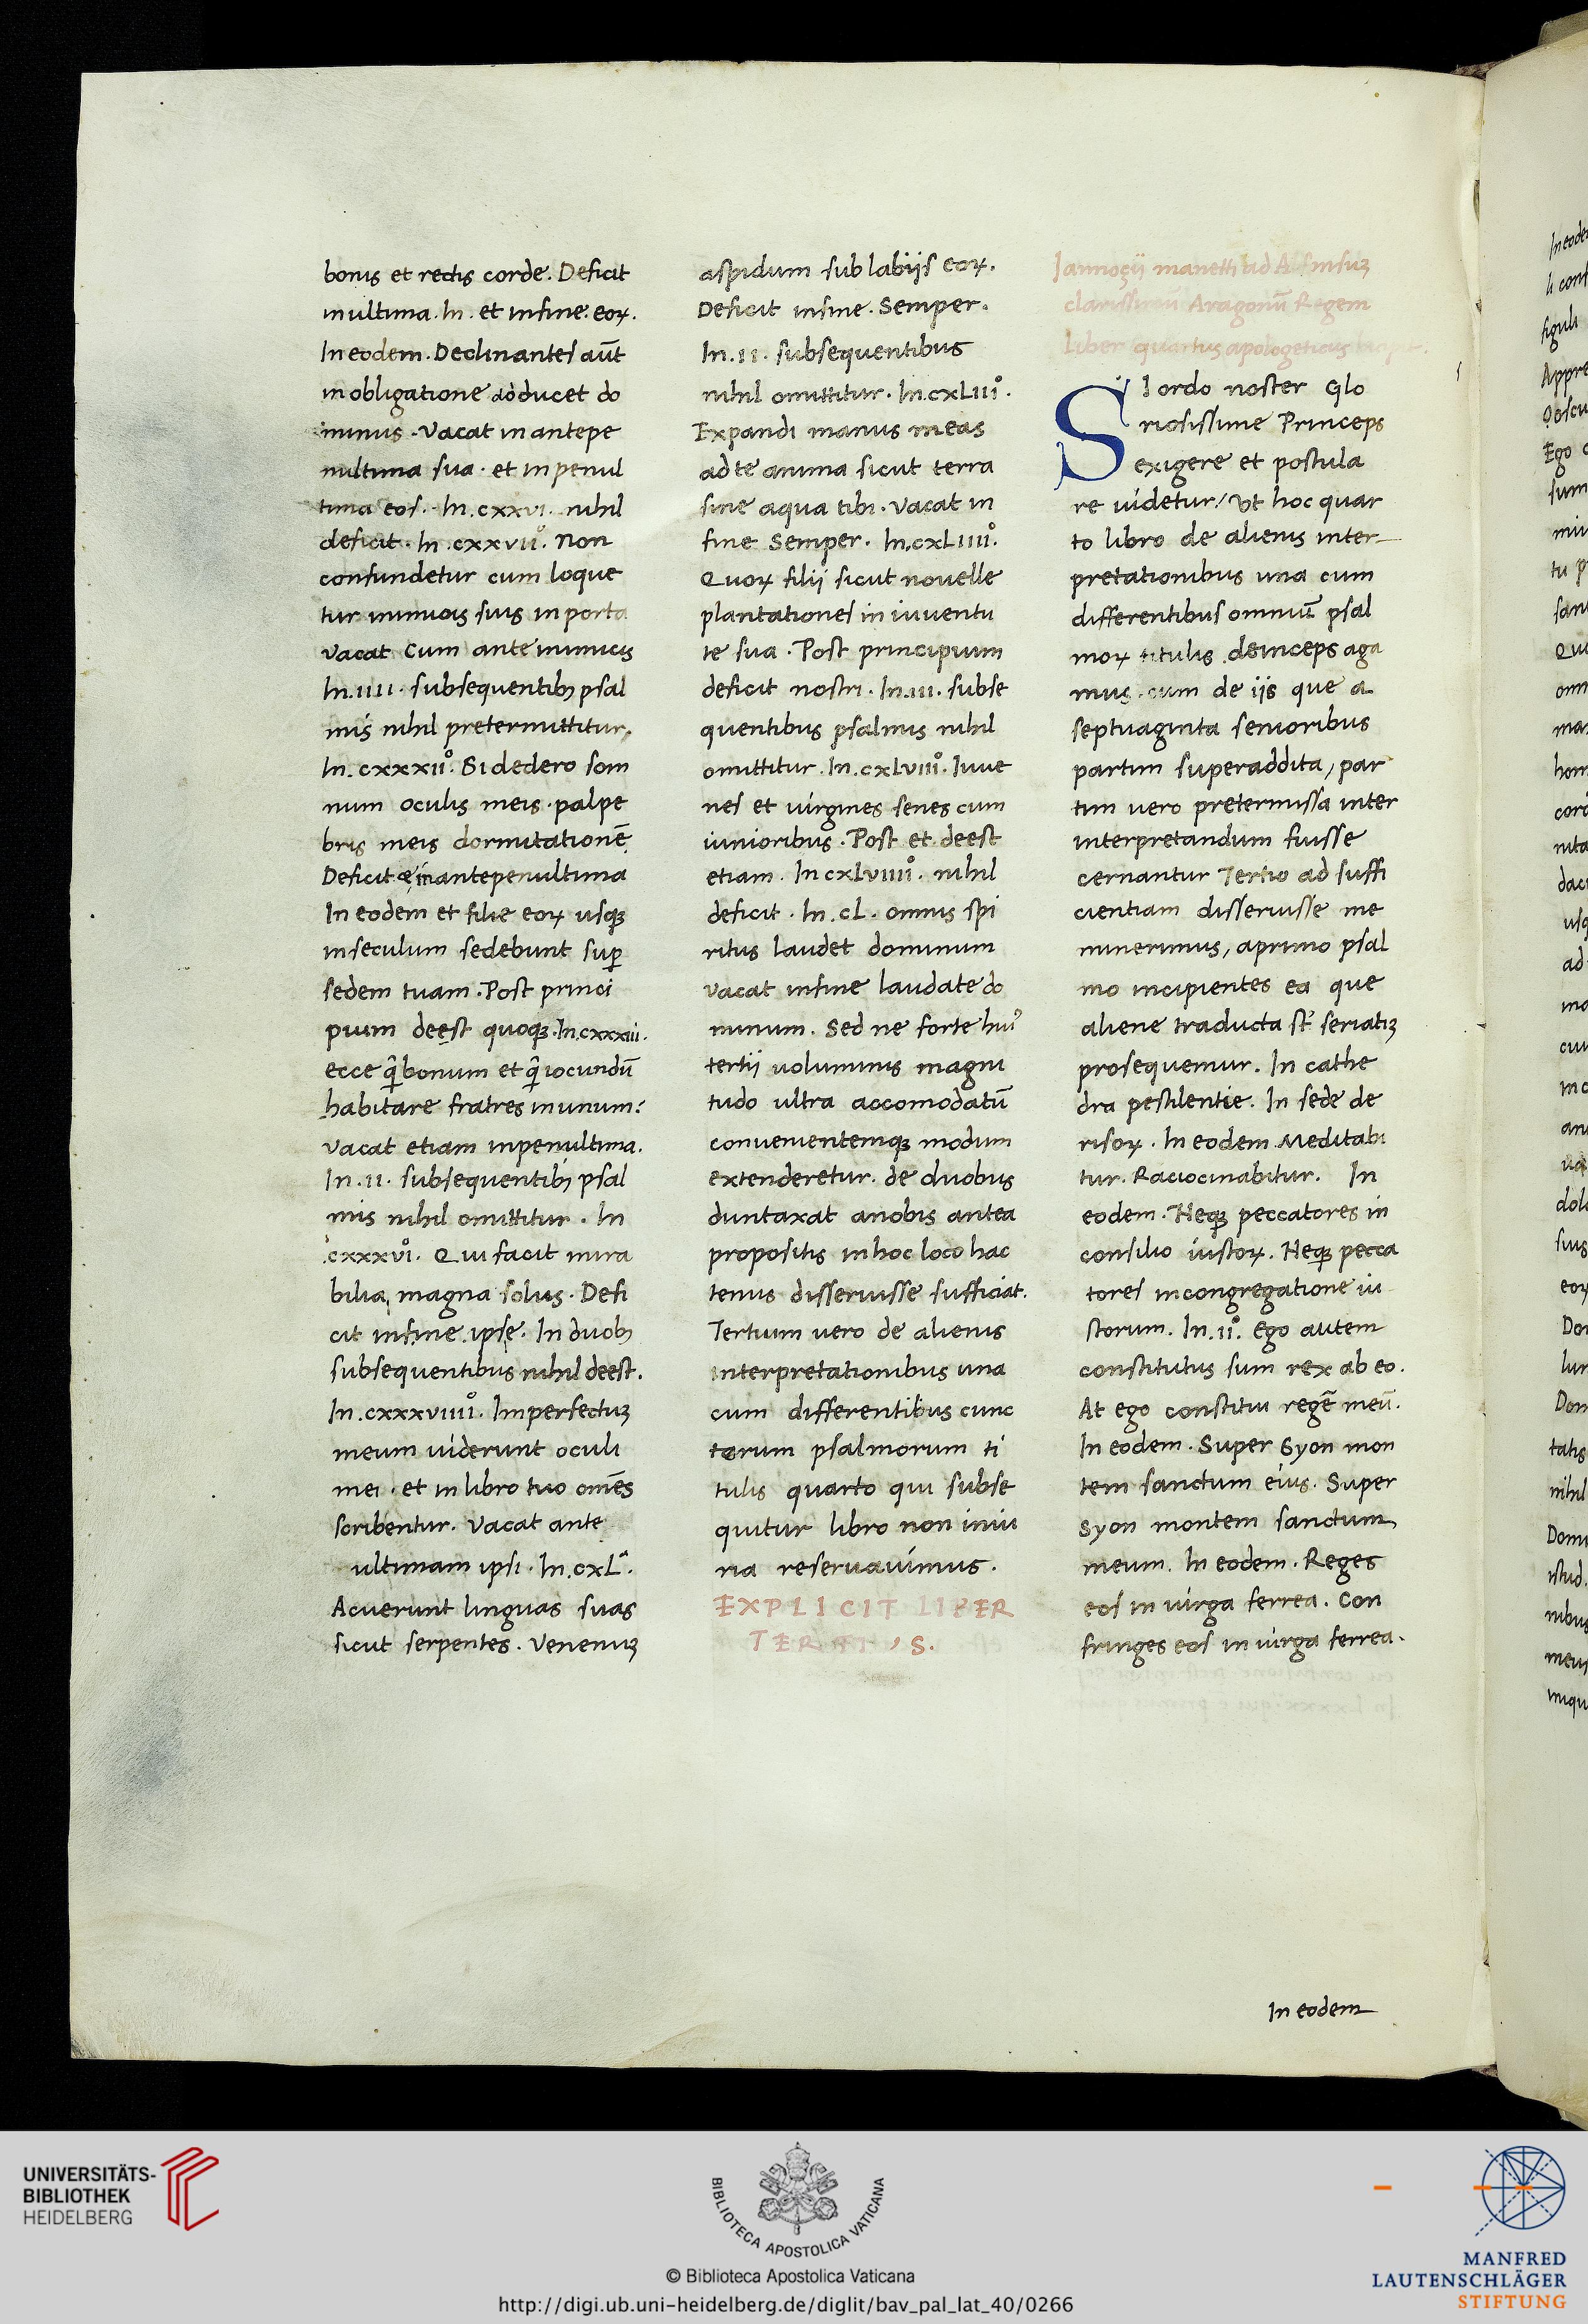 bonis et rectis corde. Deficit
in ultima. In. et in fine. eoꝝ.
In eodem. Declinantes aūt
in obligatione adducet do
minus. Vacat in antepe
nultima sua. et in penul
tima eos. In. cxxvi. nihil
deficit. In. cxxvii°. Non
confundetur cum loque
tur inimicis suis in porta
vacat Cum ante inimicis
In. iiii. subsequentibꝫ psal
mis nihil pretermittitur.
In. cxxxii°. Si dedero som
num oculis meis. palpe
bris meis dormitationē.
Deficit & in antepenultima
In eodem et filie eoꝝ usqꝫ
in seculum sedebunt suꝑ
sedem tuam. Post princi
pium deest quoqꝫ. In. cxxxiii.
ecce q̄ bonum et q̄ iocundū
habitare fratres in unum:
vacat etiam in penultima.
In. ii. subsequentibꝫ psal
mis nihil omittitur. In
cxxxvi°. Qui facit mira
bilia magna solus. Defi
cit in fine ipse. In duobꝫ
subsequentibus nihil deest.
In. cxxxviiii°. Imperfectuꝫ
meum uiderunt oculi
mei. et in libro tuo om̄es
scribentur. Vacat ante
ultimam ipsi. In. cxLª.
Acuerunt linguas suas
sicut serpentes. Venenuꝫ
aspidum sub labijs eoꝝ.
Deficit in fine. Semper.
In. ii. subsequentibus
nihil omittitur. In. cxLiii°.
Expandi manus meas
ad te anima sicut terra
sine aqua tibi. Vacat in
fine Semper. In. cxLiiii°.
Quoꝝ filij sicut nouelle
plantationes in iuuentu
te sua. Post principium
deficit nostri. In. iii. subse
quentibus psalmis nihil
omittitur. In. cxLviii°. Iuue
nes et uirgines senes cum
iunioribus. Post et deest
etiam. In cxLviiii°. nihil
deficit. In. cL. omnis spi
ritus laudet dominum
vacat in fine laudate do
minum. Sed ne forte hui⁹
tertij uoluminis magni
tudo ultra accomodatū
conuenientemqꝫ modum
extenderetur. de duobus
duntaxat a nobis antea
propositis in hoc loco hac
tenus disseruisse sufficiat.
Tertium uero de alienis
interpretationibus una
cum differentibus cunc
torum psalmorum ti
tulis quarto qui subse
quitur libro non iniu
ria reseruauimus.
EXPLICIT LIBER
TER S.
Iannoçii manetti ad Alfonsuꝫ
clarissimū Aragonū Regem
liber quartus apologeticus
SI ordo noster Glo
riosissime Princeps
exigere et postula
re uidetur/ Vt hoc quar
to libro de alienis inter
pretationibus una cum
differentibus omniū psal
moꝝ titulis deinceps aga
mus. cum de iis que a
septuaginta senioribus
partim superaddita, par
tim vero pretermissa inter
interpretandum fuisse
cernantur Tertio ad suffi
cientiam disseruisse me
minerimus, a primo psal
mo incipientes ea que
aliene traducta sūt seriatiꝫ
prosequemur. In cathe
dra pestilentie. In sede de
risoꝝ. In eodem Meditabi
tur. Raciocinabitur. In
eodem. Neqꝫ peccatores in
consilio iustoꝝ. Neqꝫ pecca
tores in congregatione iu
storum. In. ii°. Ego autem
constitutus sum rex ab eo.
At ego constitui regē meū.
In eodem. Super Syon mon
tem sanctum eius. Super
Syon montem sanctum
meum. In eodem. Reges
eos in uirga ferrea. Con
fringes eos in uirga ferrea.
In eodem
UNIVERSITÄTS-
BIBLIOTHEK
HEIDELBERG
BIBLIOTECA APOSTOLICA VATICANA
© Biblioteca Apostolica Vaticana
http://digi.ub.uni-heidelberg.de/diglit/bav_pal_lat_40/0266
MANFRED
LAUTENSCHLÄGER
STIFTUNG